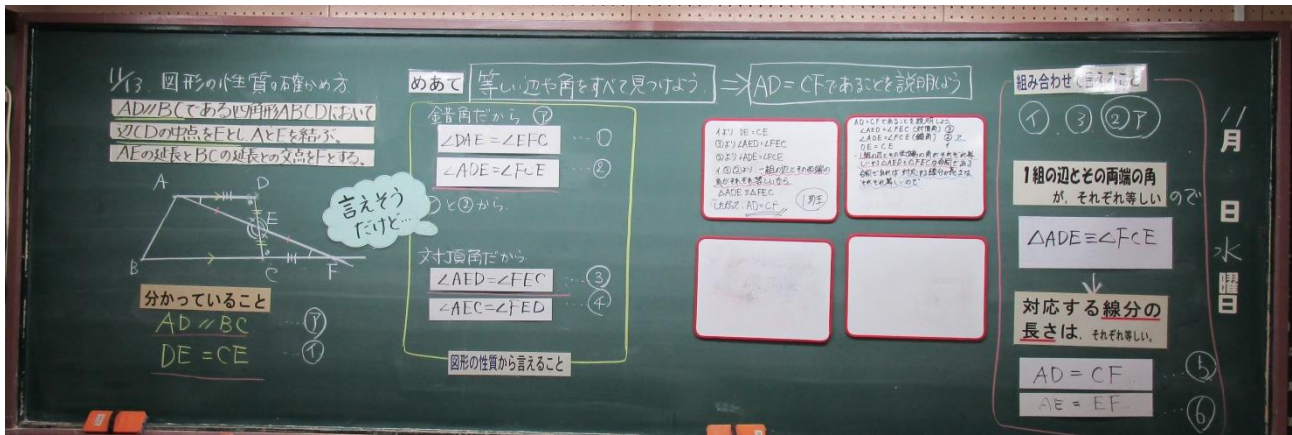 11/13. 図形の性質の確かめ方
AD//BCである四角形ABCDにおいて
辺CDの中点をEとし、AとEを結ぶ。
AEの延長とBCの延長との交点をFとする。
A
D
E
B
C
F
分かっていること
AD // BC …㋐
DE = CE …㋑
言えそう
だけど…
めあて
等しい辺や角をすべて見つけよう. ⇒ AD = CFであることを説明しよう
錯角だから ㋐
∠DAE = ∠EFC …①
∠ADE = ∠FCE …②
①と②から
対頂角だから
∠AED = ∠FEC …③
∠AEC = ∠FED …④
図形の性質から言えること
イより DE=CE
③より ∠AED=∠FEC
②より ∠ADE=∠FCE
イ③②より 一組の辺とその両端の
角がそれぞれ等しいなら
△ADE≡△FEC
したがって AD=CF
AD=CFであることを説明しよう
∠AED=∠FEC (対頂角) ③
∠ADE=∠FCE (錯角) ②
DE=CE
組み合わせて言えること
㋑. ③. ②㋐
1組の辺とその両端の角
が、それぞれ等しいので
△ADE≡△FCE
↓
対応する線分の
長さは、それぞれ等しい。
AD = CF …⑤
AE = EF …⑥
11
月
日
水
曜
日